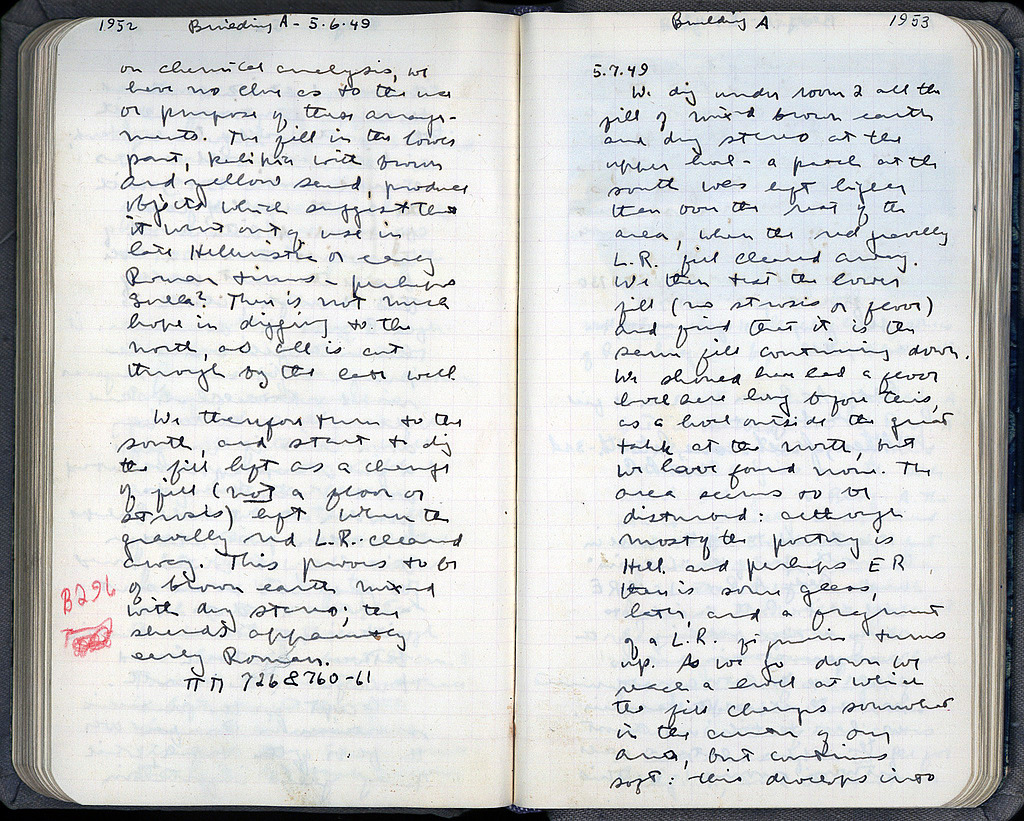 1952 Building A - 5.6.49
on chemical analysis, we
have no clue as to the use
or purpose of these arrange-
ments. The fill in the lower
part, kulihia with brown
and yellow sand, produced
objects which suggest that
it went out of use in
late Hellenistic or early
Roman times - perhaps
Sulla? There is not much
hope in digging to the
north, as all is cut
through by the late well.
We therefore turn to the
south, and start to dig
the fill left as a change
of fill (not a floor or
strosis) left when the
gravelly red L.R. cleared
away. This proves to be
of brown earth mixed
with dug stereo; the
sherds apparently
early Roman.
ΠΠ 726 & 760-61
B296
Building A 1953
5.7.49
We dig under room 2 all the
fill of mixed brown earth
and dug stereo at the
upper level - a patch at the
south was left higher
than over the rest of the
area, when the red gravelly
L.R. fill cleared away.
We then test the lower
fill (no strosis or floor)
and find that it is the
same fill continuing down.
We should have had a floor
level here long before this,
as a level outside the great
tank at the north, but
we have found none. The
area seems to be
disturbed: although
most of the pottery is
Hell. and perhaps ER,
there is some glass,
later, and a fragment
of a L.R. figurine turns
up. As we go down we
reach a level at which
the fill changes somewhat
in the center of our
area, but continues
soft: this develops into